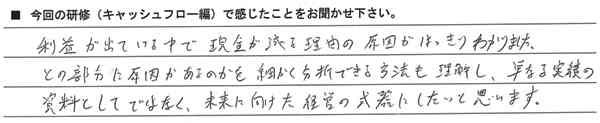 ■ 今回の研修（キャッシュフロー編）で感じたことをお聞かせ下さい。
利益が出ている中で現金が減る理由の原因がはっきりわかりました。
どの部分に原因があるのかを細かく分析できる方法も理解し、単なる実績の
資料としてではなく、未来に向けた経営の武器にしたいと思います。